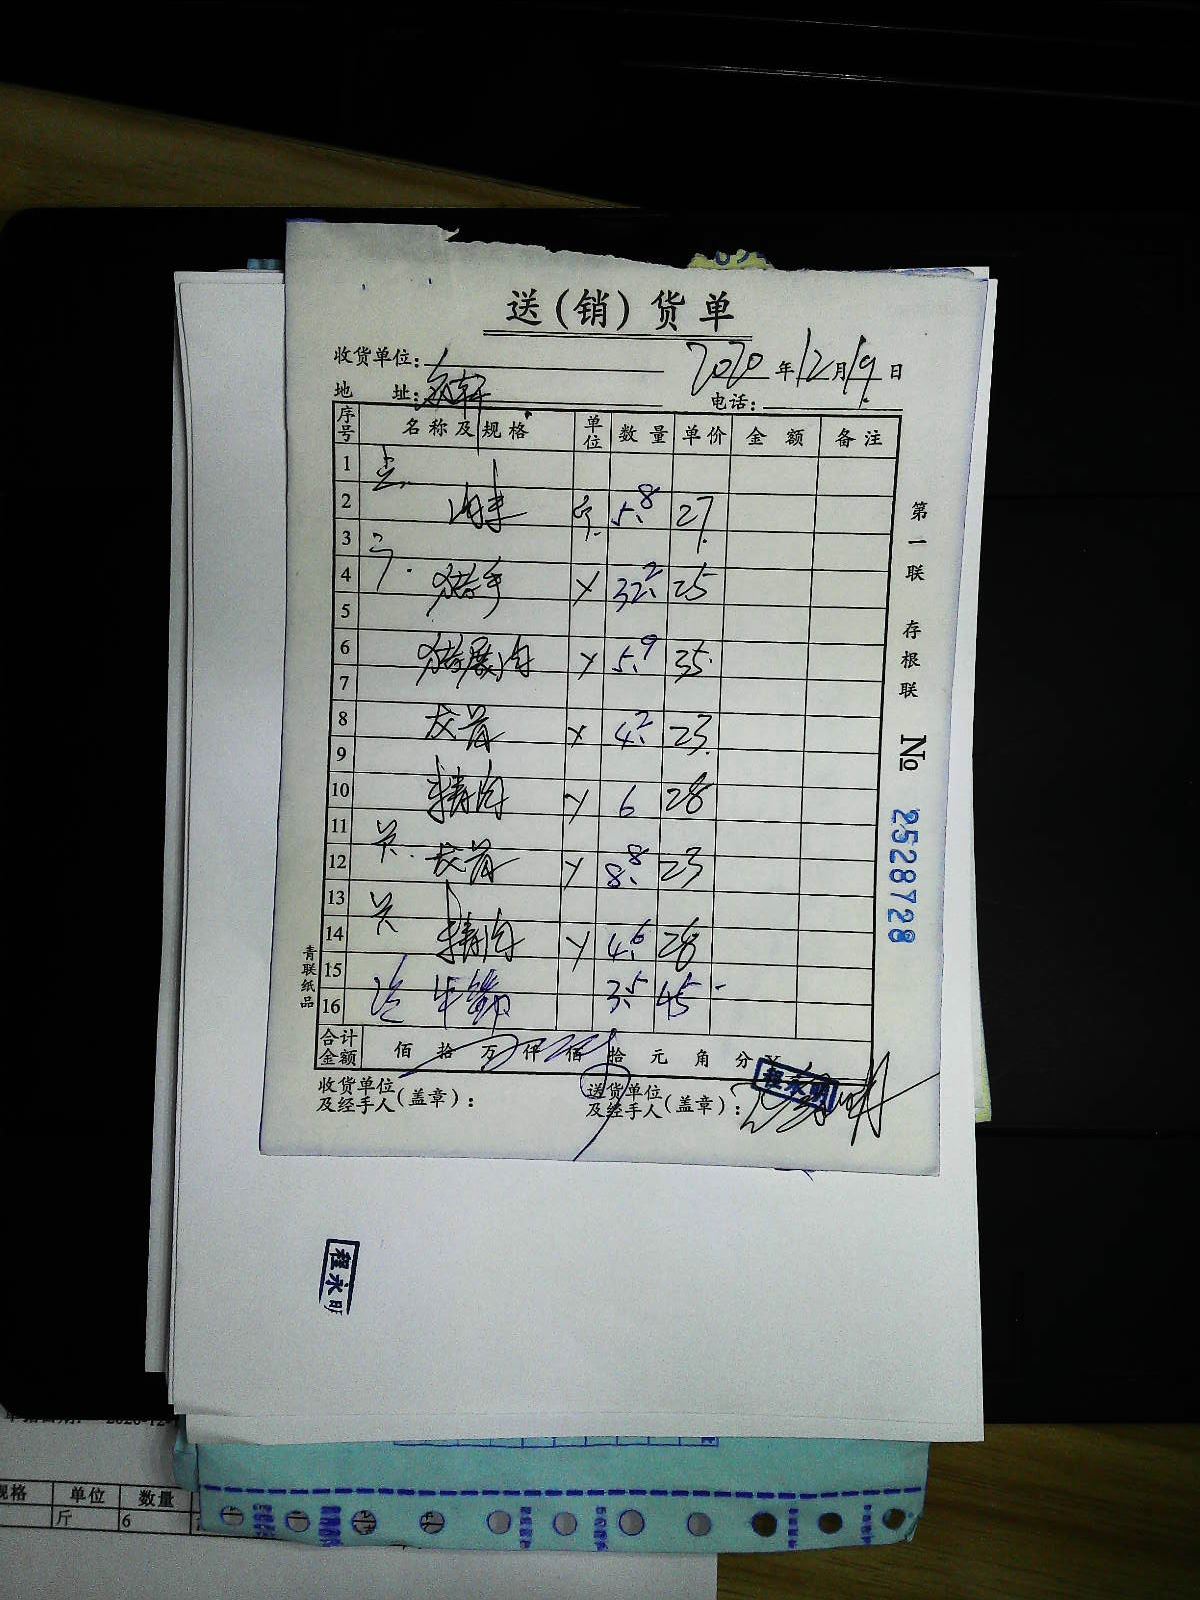 送(销)货单
收货单位: 2020年12月19日
地 址: 电话:
序号 名称及规格 单位 数量 单价 金额 备注
1
2 肉末 斤 5.8 27
3
4 猪手 Y 32.2 25
5
6 猪展肉 Y 5.9 35
7
8 龙骨 Y 4.2 23
9
10 精肉 Y 6 28
11
12 龙骨 Y 8.8 23
13
14 精肉 Y 4.6 28
15
16 牛腩 3.5 45
合计金额 佰 拾 万 仟 佰 拾 元 角 分 ¥
收货单位及经手人(盖章): 送货单位及经手人(盖章): 程永明
第一联 存根联 № 2528728
青联纸品
程永明
规格 单位 数量
斤 6